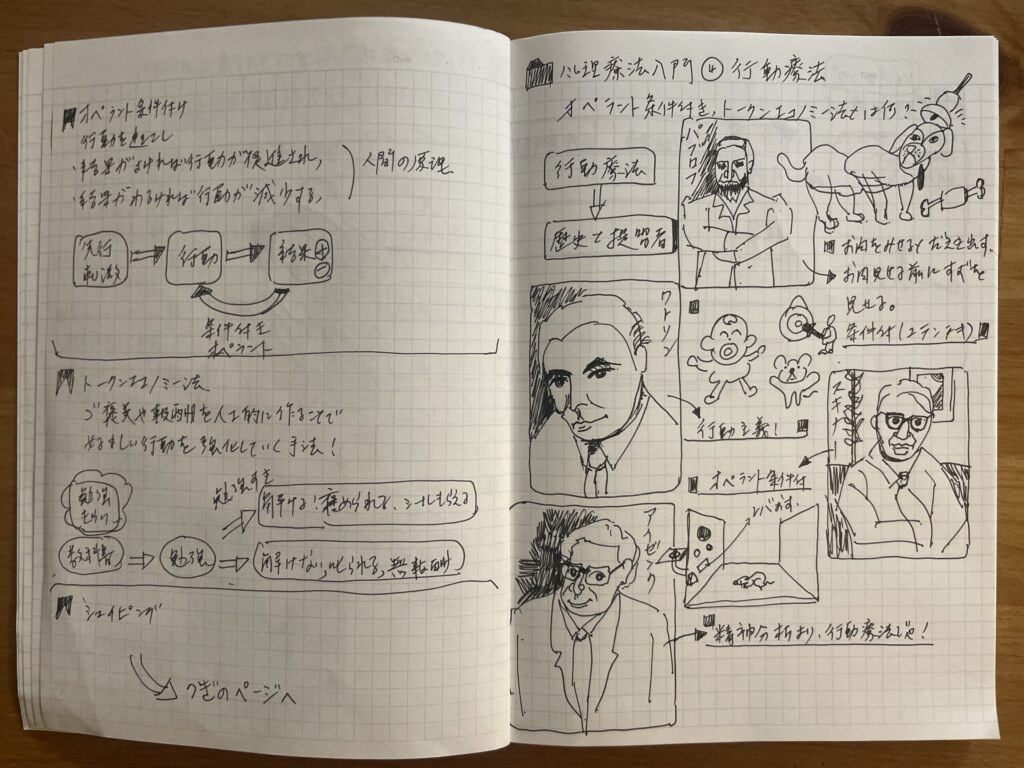 オペラント条件付け
行動を進てし
・結果がよければ行動が促進され、
・結果がわるければ行動が減少する、
人間の原理
先行
行動
結果
＋
－
条件付き
オペラント
トークンエコノミー法
ご褒美や報酬を人工的に作ることで
好ましい行動を強化していく手法！
勉強
きらい
勉強すき
問解ける、褒められる、シールもらえる
教科書
勉強
問解けない、叱られる、無報酬
シェイピング
つぎのページへ
心理療法入門 ④ 行動療法
オペラント条件付き、トークンエコノミー法とは何？
行動療法
歴史と提唱者
パブロフ
お肉をみせるとだえき出す、
お肉見せる前にすずを
見せる。
条件付(コテンテキ)
ワトソン
行動主義！
スキナー
オペラント条件付
レバおす、
アイゼンク
精神分析より、行動療法じゃ！